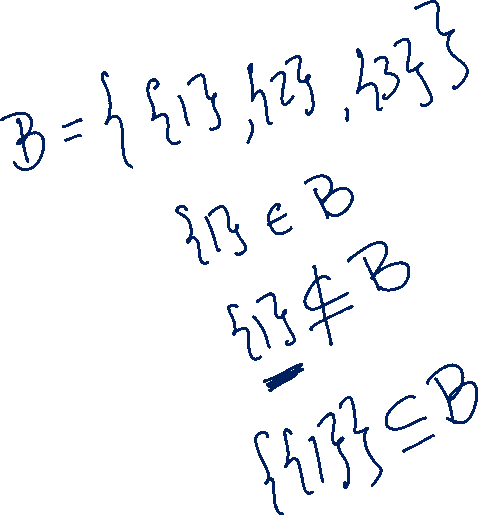 B = { {1}, {2}, {3} }
{1} ∈ B
{1} ⊈ B
{{1}} ⊆ B